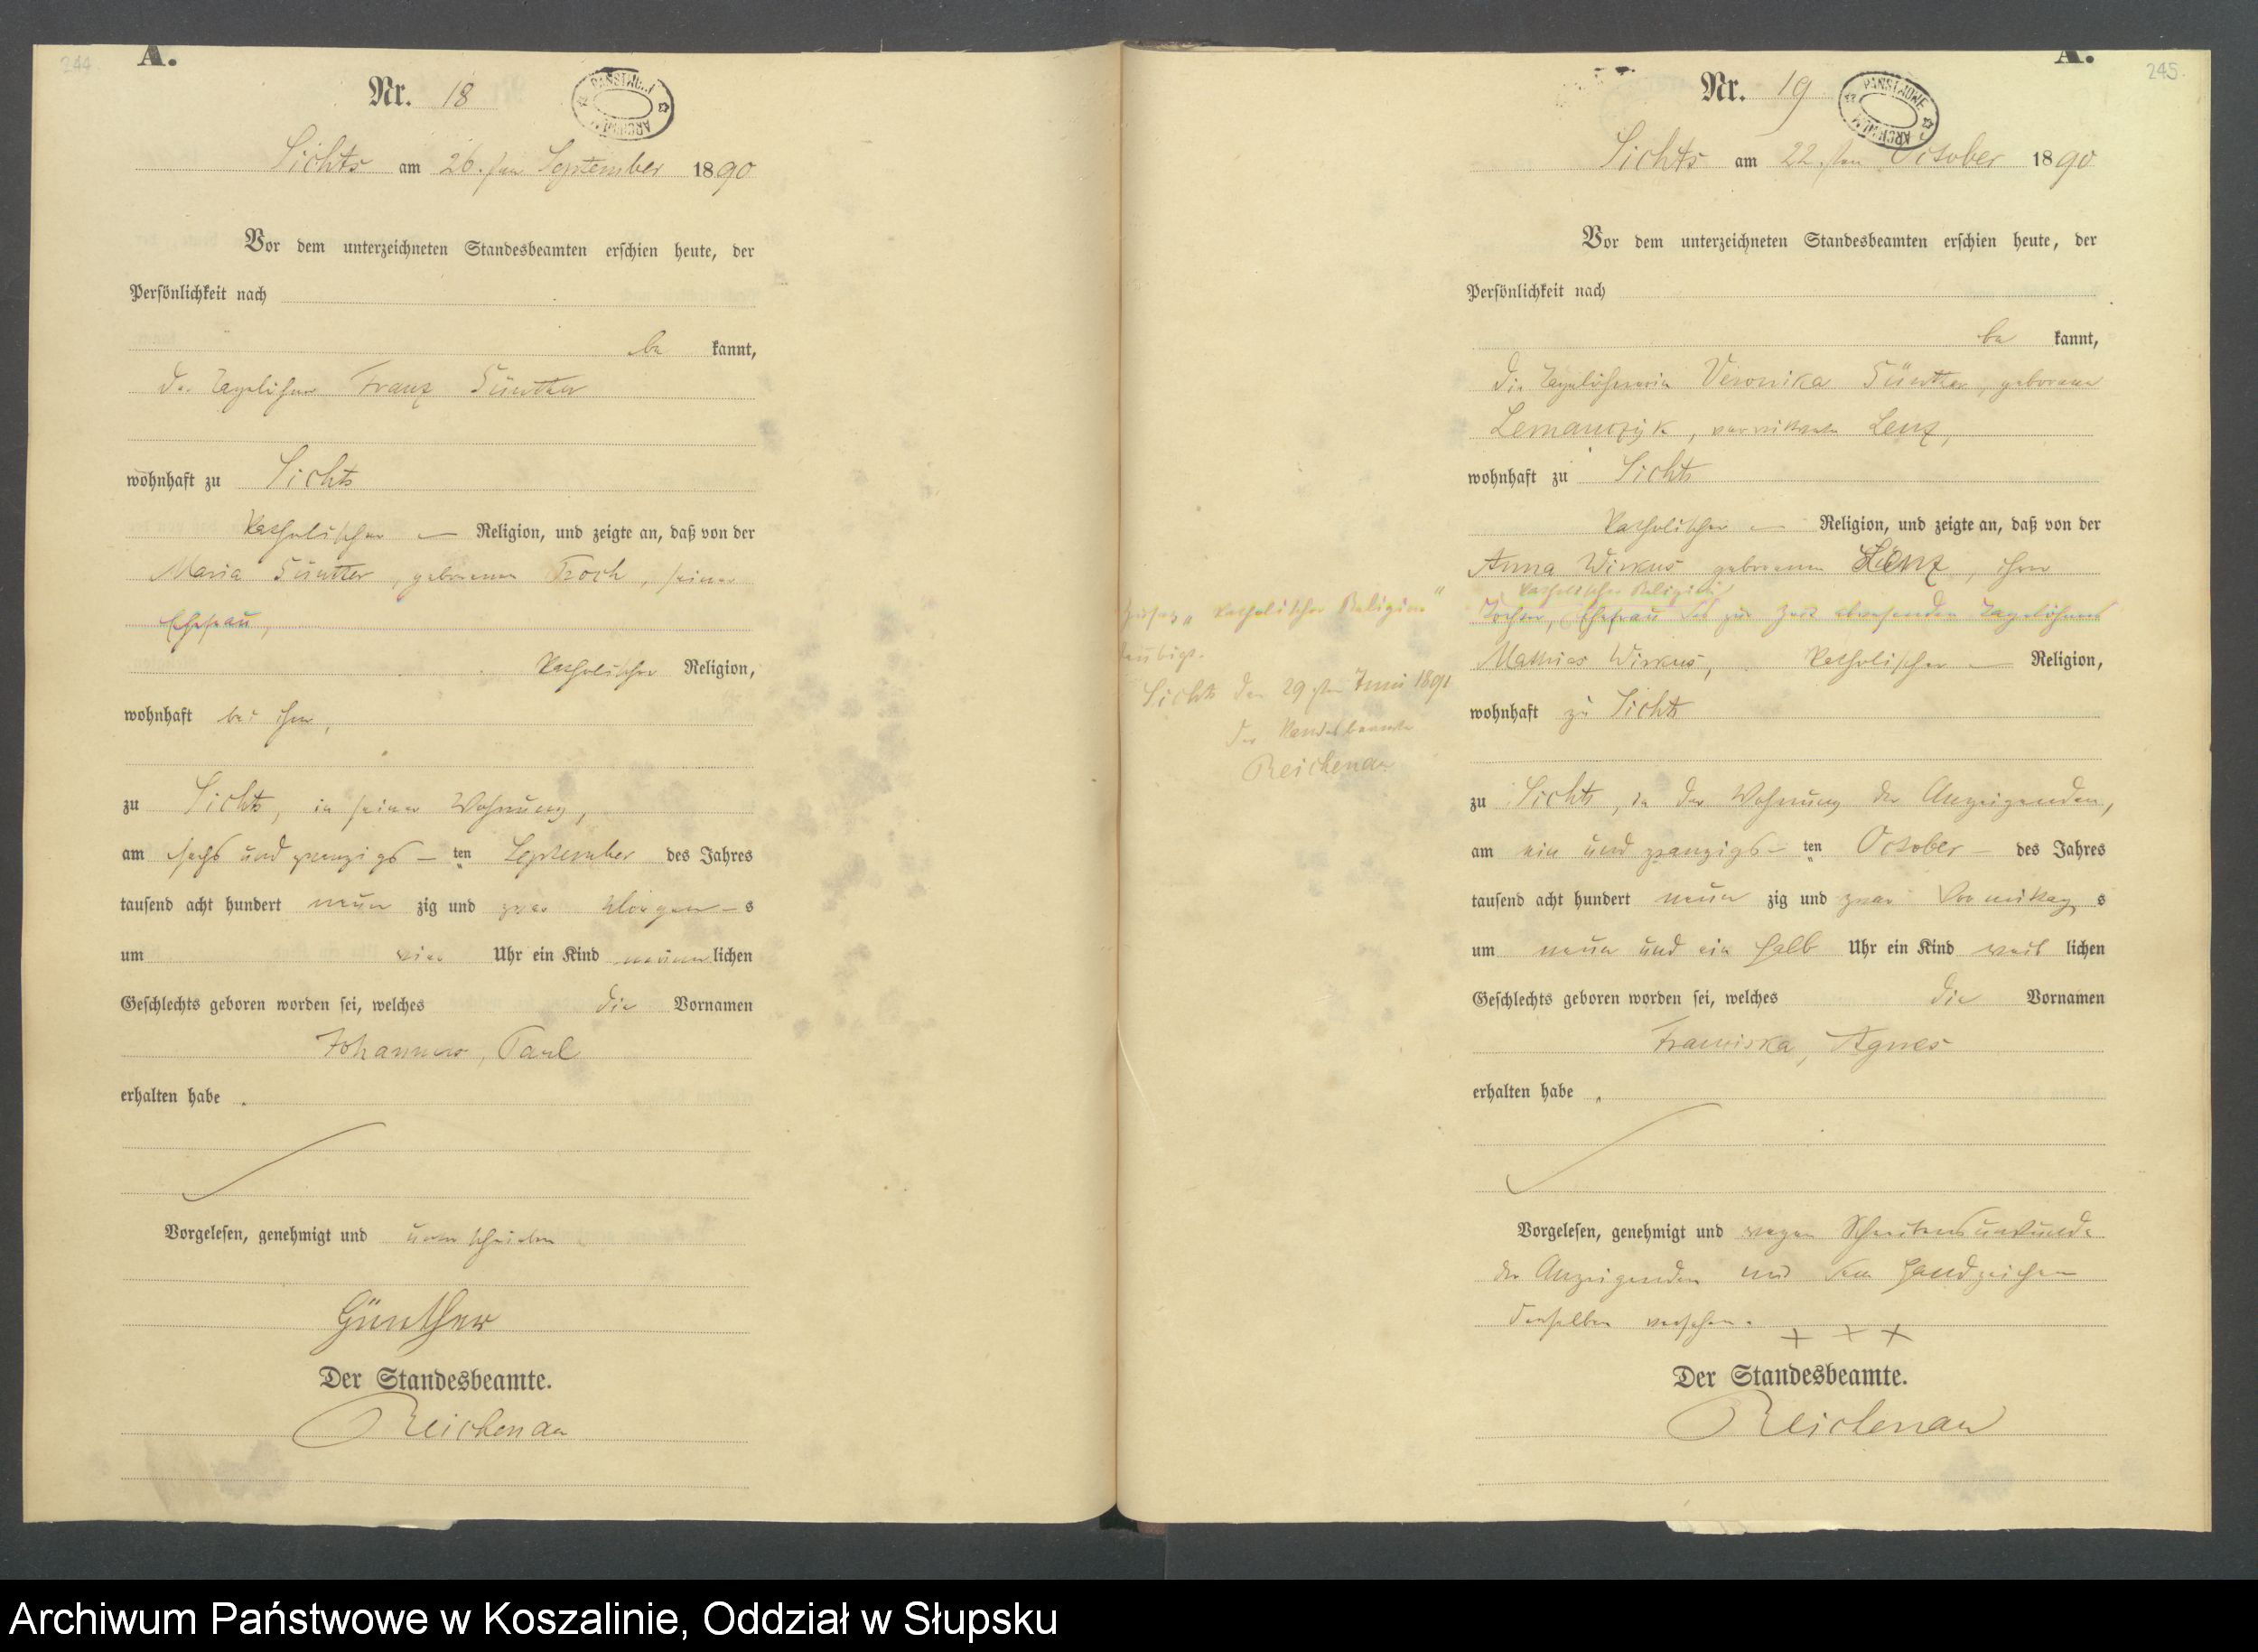 244
A.
Nr. 18
PAŃSTWOWE ARCHIWUM
Lichts am 26.ten September 1890
Vor dem unterzeichneten Standesbeamten erschien heute, der
Persönlichkeit nach
be kannt,
der Tagelöhner Franz Günther
wohnhaft zu Lichts
katholischer — Religion, und zeigte an, daß von der
Maria Günther, geborenen Troch, seiner
Ehefrau,
katholischer Religion,
wohnhaft bei ihm,
zu Lichts, in seiner Wohnung,
am sechs und zwanzigs — ten September des Jahres
tausend acht hundert neun zig und zwar Morgen – s
um vier Uhr ein Kind männ lichen
Geschlechts geboren worden sei, welches die Vornamen
Johannes, Paul
erhalten habe.
Vorgelesen, genehmigt und unterschrieben
Günther
Der Standesbeamte.
Reichenau
katholischer Religion"
Lichts den 29.ten Juni 1891
Der Standesbeamte
Reichenau
245.
A.
Nr. 19
PAŃSTWOWE ARCHIWUM
Lichts am 22.ten October 1890
Vor dem unterzeichneten Standesbeamten erschien heute, der
Persönlichkeit nach
be kannt,
die Tagelöhnerin Veronika Günther, geborene
Lemanczyk, verwittwete Lenz,
wohnhaft zu Lichts
katholischer — Religion, und zeigte an, daß von der
Anna Wirkus geborenen Lenz, ihrer
katholischer Religion
Tochter, Ehefrau des zur Zeit abwesenden Tagelöhners
Mathias Wirkus, katholischer — Religion,
wohnhaft zu Lichts
zu Lichts, in der Wohnung der Anzeigenden,
am ein und zwanzigs – ten October – des Jahres
tausend acht hundert neun zig und zwar Vormittag s
um neun und ein halb Uhr ein Kind weib lichen
Geschlechts geboren worden sei, welches die Vornamen
Franciska, Agnes
erhalten habe.
Vorgelesen, genehmigt und wegen Schreibensunkunde
der Anzeigenden mit dem Handzeichen
derselben versehen.
+ + +
Der Standesbeamte.
Reichenau
Archiwum Państwowe w Koszalinie, Oddział w Słupsku